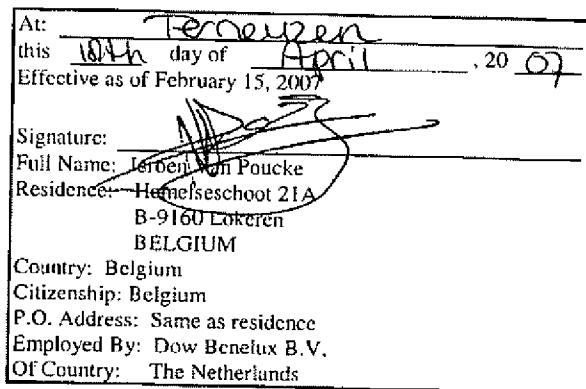 At: Terneuzen
this 10th day of April , 20 07
Effective as of February 15, 2007
Signature:
Full Name: Jeroen Van Poucke
Residence: Hemelseschoot 21A
B-9160 Lokeren
BELGIUM
Country: Belgium
Citizenship: Belgium
P.O. Address: Same as residence
Employed By: Dow Benelux B.V.
Of Country: The Netherlands